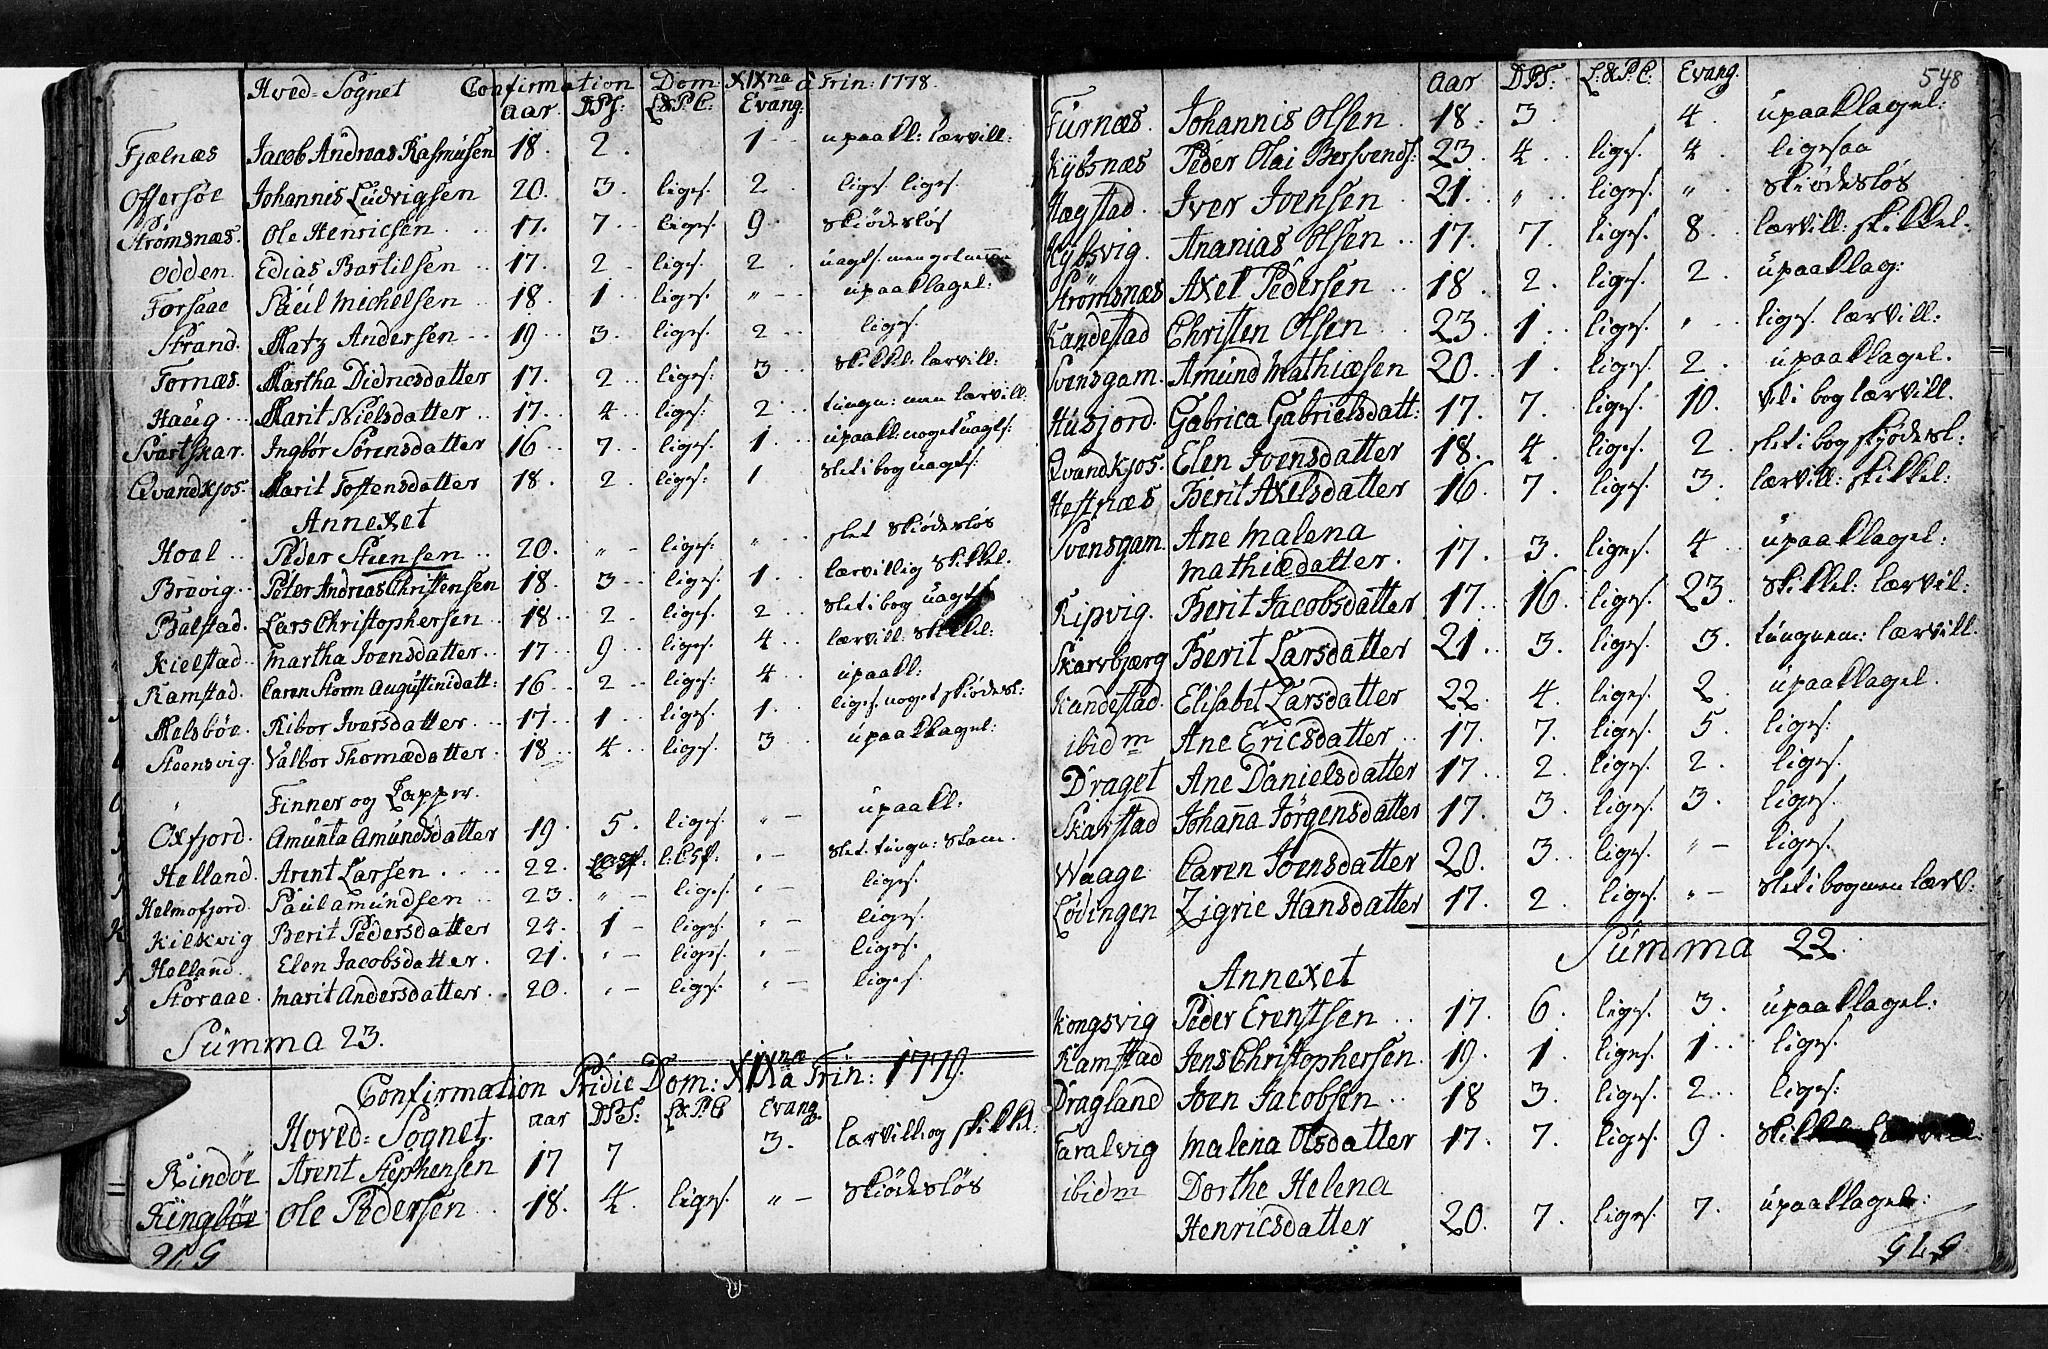 Hved-Sognet Confirmation Dom: XIXna à Trin: 1778.
Aar DPS: L&P.C. Evang:
Fjælnæs Jacob Andreas Rasmusen 18. 2. 1 upaakl: lærvill:
Offersøe Johannis Ludvigsen 20. 3. liges. 2 liges. liges.
Strømsnæs. Ole Henricsen 17. 7. liges. 9 skiødesløs
Odden. Edias Bartilsen 17. 2 liges. 2. uagts.
Forsaae Poul Michelsen 18. 1 liges. " upaaklagel:
Strand. Matz Andersen 19 3. liges. 2 liges.
Tornæs. Martha Didricsdatter 17. 2 liges: 3 skikkl: lærvill:
Haug Marit Nielsdatter 17. 4 liges: 2 tungn: men lærvill:
Svartskar. Ingbør Sørensdatter 16 7. liges. 1 upaakl: noget uagts:
Qvandkjos. Marit Tostensdatter 18. 2. liges: 1 slet i bog uagts:
Annexet
Hoel Peder Steensen 20. " liges: " slet skiødesløs
Brøvig. Peter Andreas Christensen 18. 3 liges. 1. lærvillig skikkel.
Balstad. Lars Christophersen 18. 2. liges. 2 slet i bog uagts
Kielstad. Martha Ivensdatter 17. 9 liges. 4 lærvill: skikkel:
Ramstad. Caren Storm Augustinidatt: 16 2 liges: 4 upaakl:
Melsbøe. Kibor Iversdatter 17. 1 liges. 1. liges. noget skiødesl:
Steensvig. Valbor Thomædatter 18 4 liges. 3 upaaklagel:
Finner og Lapper.
Oxfjord. Amunta Amundsdatter 19. 5. liges. " upaakl:
Helland. Arent Larsen 22. " slet. tungn: skam.
Helmofjord. Paul Amundsen 23. " liges. " liges.
Kilkvig Berit Pedersdatter 24. 1 liges. " liges.
Helland. Elen Jacobsdatter. 21. " liges. " liges.
Storaae. Marit Andersdatter 20. " liges. " liges.
Summa 23.
Confirmation Pridie Dom: XIXna à Trin: 1779.
Hoved-Sognet. Aar DPS: L&P.C Evang
Rindøe Arent Stephensen 17 7 3. lærvill: og skikkl:
Ringbøe Ole Pedersen 18. 4. liges. " skiødesløs
548
Aar DPS: L:&P.C. Evang.
Furnæs. Johannis Olsen. 18. 3. 4. upaaklagel:
Kjøbsnæs Peder Olai Bersvends: 23. 4. liges. 4. ligesaa
Hægstad. Iver Ivensen 21. " liges. " skiødesløs
Kjøbsvig. Ananias Olsen 17. 7. liges. 8. lærvill: skikkel.
Strømsnæs Axel Pedersen 18. 2. liges. 2. upaaklag:
Kandestad Christen Olsen 23. 1. liges. " liges. lærvill:
Svensgam. Amund Mathiæsen 20. 1. liges. 2. upaaklagel.
Husjord. Gabrica Gabrielsdatt: 17. 7. liges. 10. vel i bog lærvill.
Qvandkjos. Elen Ivensdatter 18. 4. liges. 2. slet i bog skjødesl:
Hestnæs Berit Axelsdatter 16. 7. liges. 3. lærvill: skikkel:
Svensgam. Ane Malena
Mathiædatter. 17. 3. liges. 4. upaaklagel:
Ripvig. Berit Jacobsdatter 17. 16. liges. 23. skikkel: lærvil:
Skarvbjærg Berit Larsdatter 21. 3. liges. 3. tungnem: lærvill.
Kandestad. Elisabet Larsdatter 22. 4. liges. 2. upaaklagel.
ibidm Ane Ericsdatter 17. 7. liges. 5. liges:
Draget Ane Danielsdatter 17. 2. liges. 2. liges.
Skarstad Johana Jørgensdatter 17. 3. liges. 3. liges.
Waage Caren Ivensdatter 20. 3. liges. " liges.
Lødingen Zigrie Hansdatter 17. 2. liges. " slet i bog men lærv:
Summa 22.
Annexet
Kongsvig Peder Erentsen 17. 6. liges. 3. upaaklagel:
Kamstad Jens Christophersen. 19. 1. liges. 1. liges.
Dragland Iven Jacobsen 18 3. liges. 2. liges:
Taralvig Malena Olsdatter 17. 7. liges. 9. lærvill:
ibidm Dorthe Helena
Henricsdatter 20. 7. liges. 7. upaaklagel: